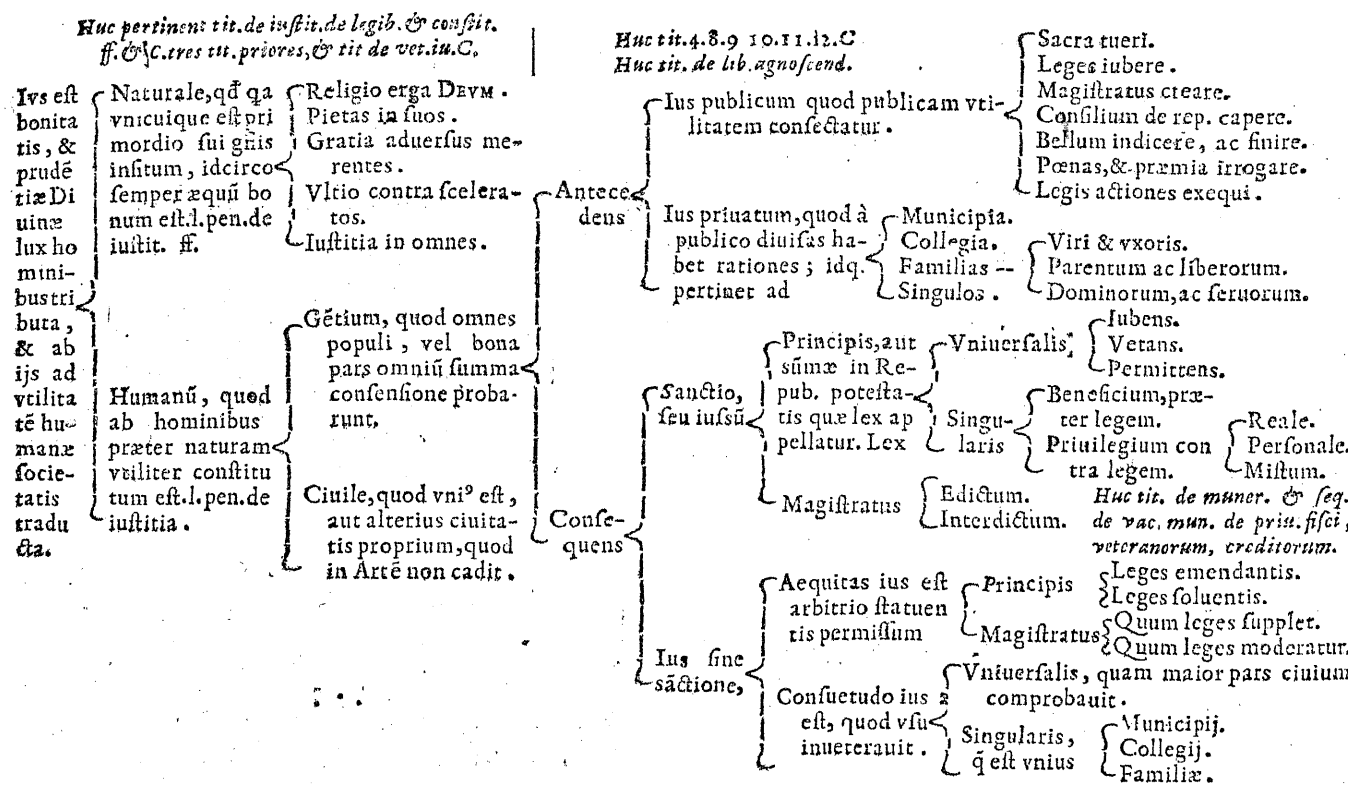 Huc pertinent tit. de iuſtit. de legib. & conſtit.
ff. & C. tres tit. priores, & tit de vet. iu. C.
Ivs eſt
bonita
tis, &
prudē
tiæ Di
uinæ
lux ho
mini-
bus tri
buta,
& ab
ijs ad
vtilita
tē hu-
manæ
ſocie-
tatis
tradu
cta.
Naturale, qđ qa
vnicuique eſt pri
mordio ſui gn̄is
inſitum, idcirco
ſemper æquū bo
num eſt. l. pen. de
iuſtit. ff.
Religio erga DEVM.
Pietas in ſuos.
Gratia aduerſus me-
rentes.
Vltio contra ſcelera-
tos.
Iuſtitia in omnes.
Humanū, quod
ab hominibus
præter naturam
vtiliter conſtitu
tum eſt. l. pen. de
iuſtitia.
Gētium, quod omnes
populi, vel bona
pars omniū ſumma
conſenſione proba-
runt.
Ciuile, quod vniꝰ eſt,
aut alterius ciuita-
tis proprium, quod
in Artē non cadit.
Huc tit. 4. 8. 9 10. 11. 12. C
Huc tit. de lib. agnoſcend.
Antece
dens
Ius publicum quod publicam vti-
litatem conſectatur.
Sacra tueri.
Leges iubere.
Magiſtratus creare.
Conſilium de rep. capere.
Bellum indicere, ac finire.
Pœnas, & præmia irrogare.
Legis actiones exequi.
Ius priuatum, quod à
publico diuiſas ha-
bet rationes; idq.
pertinet ad
Municipia.
Collegia.
Familias --
Singulos.
Viri & vxoris.
Parentum ac liberorum.
Dominorum, ac ſeruorum.
Conſe-
quens
Sanctio,
ſeu iuſsū
Principis, aut
sūmæ in Re-
pub. poteſta-
tis quæ lex ap
pellatur. Lex
Vniuerſalis
Iubens.
Vetans.
Permittens.
Singu-
laris
Beneficium, præ-
ter legem.
Priuilegium con
tra legem.
Reale.
Perſonale.
Miſtum.
Magiſtratus
Edictum.
Interdictum.
Huc tit. de muner. & ſeq.
de vac. mun. de priu. fiſci,
veteranorum, creditorum.
Ius ſine
sāctione,
Aequitas ius eſt
arbitrio ſtatuen
tis permiſſum
Principis
Leges emendantis.
Leges ſoluentis.
Magiſtratus
Quum leges ſupplet.
Quum leges moderatur.
Conſuetudo ius
eſt, quod vſu
inueterauit.
Vniuerſalis, quam maior pars ciuium
comprobauit.
Singularis,
q̄ eſt vnius
Municipij.
Collegij.
Familiæ.